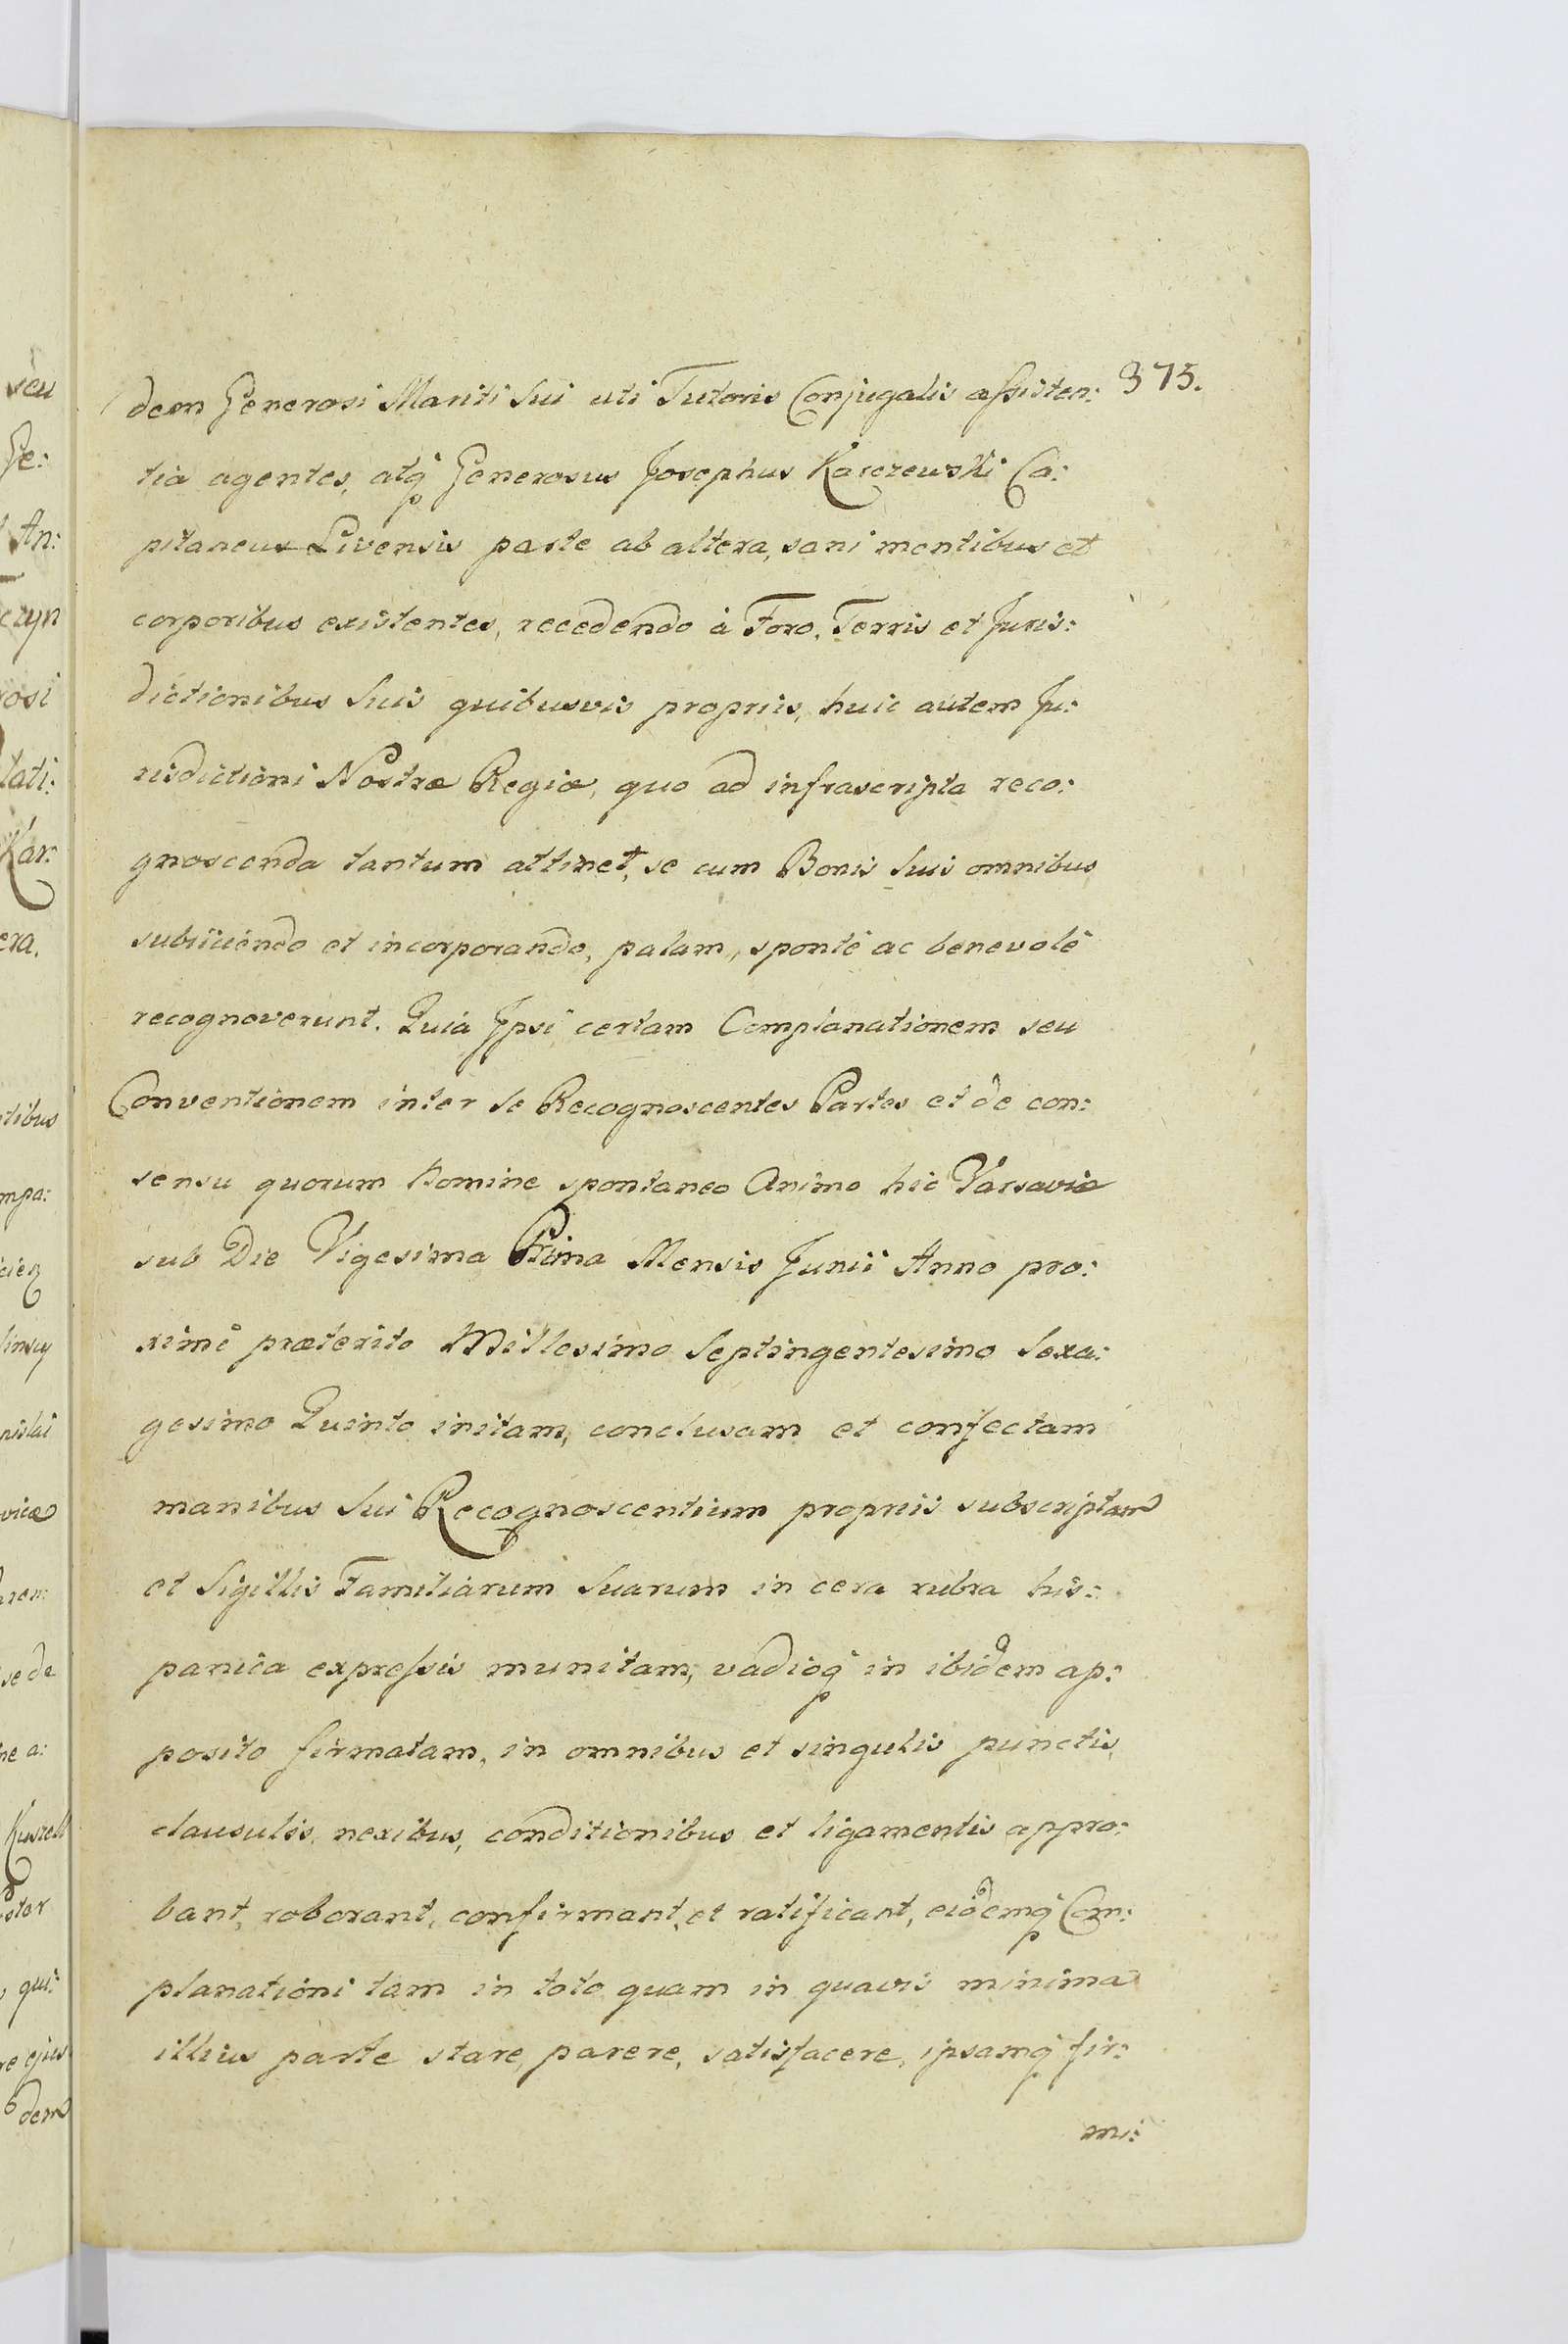 375.
dem Generosi Mariti Sui uti Tutoris Conjugalis assisten:
tia agentes, atq Generosus Josephus Karczewski Ca:
pitaneus Livensis parte ab altera, sani mentibus et
corporibus existentes, recedendo à Foro, Terris et Juris:
dictionibus Suis quibusvis propriis, huic autem Ju:
risdictioni Nostræ Regiæ, quo ad infrascripta reco:
gnoscenda tantum attinet, se cum Bonis Suis omnibus
subiiciendo et incorporando, palam, spontè ac benevolè
recognoverunt. Quia Ipsi certam Complanationem seu
Conventionem inter Se Recognoscentes Partes et de con:
sensu quorum Homine spontaneo Animo hic Varsaviæ
sub Die Vigesima Prima Mensis Junii Anno pro:
ximè præterito Millesimo Septingentesimo Sexa:
gesimo Quinto initam, conclusam et confectam
manibus Sui Recognoscentium propriis subscriptam
et Sigillis Familiarum Suarum in cera rubra his:
panica expressis munitam, vadioq in ibidem ap:
posito firmatam, in omnibus et singulis punctis,
clausulis, nexibus, conditionibus et ligamentis appro:
bant, roborant, confirmant, et ratificant, eidemq Com:
planationi tam in toto quam in quavis minima
illius parte stare, parere, satisfacere, ipsamq fir:
mi:
seu
Ge:
An:
czyn
rosi
tati:
Kar:
era.
tibus
mpa:
ciez
linscy
nislai
viæ
se de
ne a:
Kuszell
ster
qui:
re ejus
dem